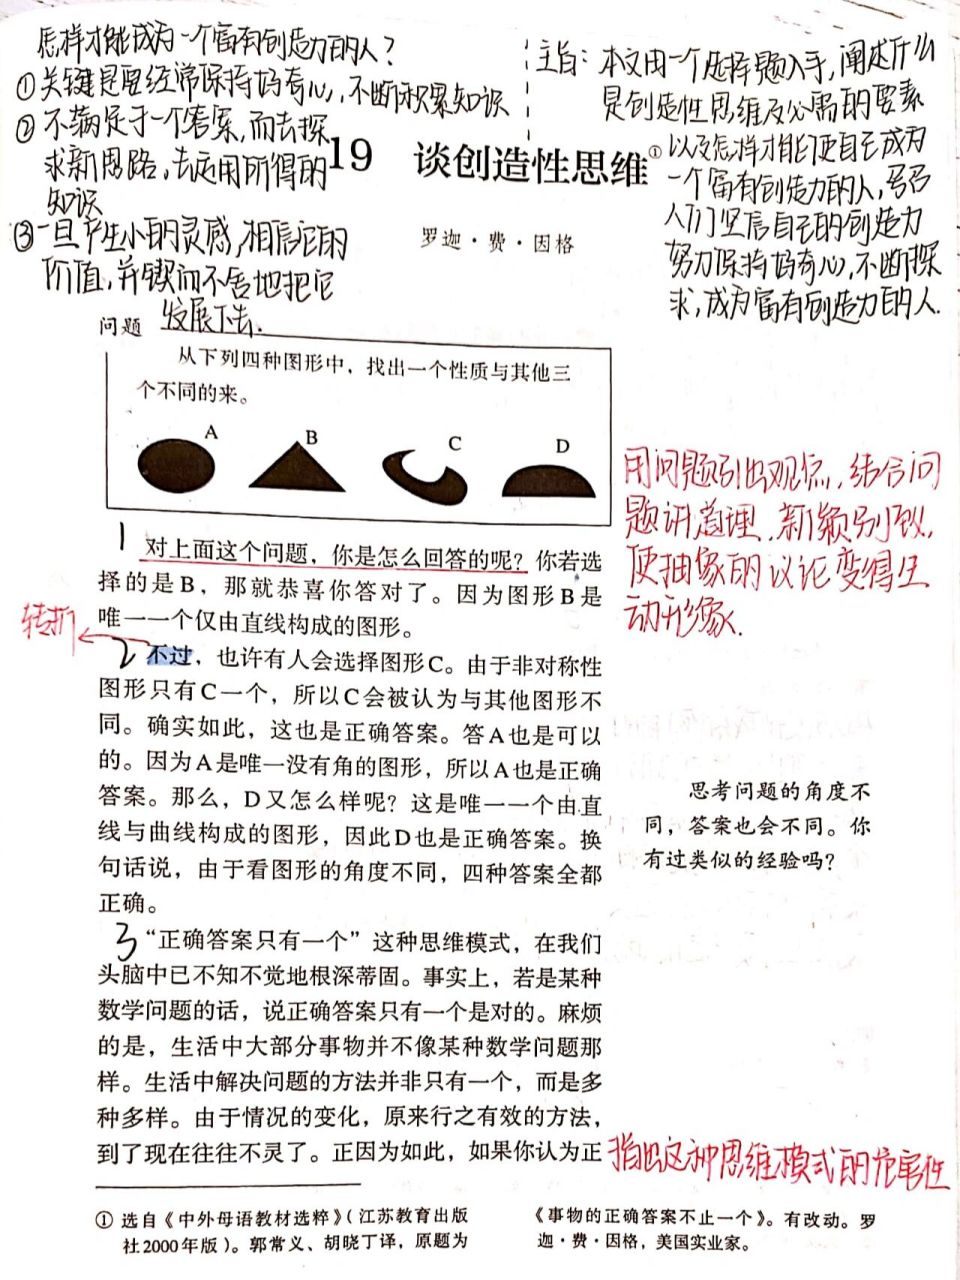 怎样才能成为一个富有创造力的人？
①关键是要经常保持好奇心，不断积累知识
②不满足于一个答案，而去探
求新思路，去运用所得的
知识
③一旦产生小的灵感，相信它的
价值，并锲而不舍地把它
发展下去.
主旨：本文由一个选择题入手，阐述什么
是创造性思维及必需的要素
以及怎样才能使自己成为
一个富有创造力的人，号召
人们坚信自己的创造力
努力保持好奇心，不断探
求，成为富有创造力的人.
19 谈创造性思维①
罗迦·费·因格
问题
从下列四种图形中，找出一个性质与其他三
个不同的来。
A B C D
用问题引出观点，结合问
题讲道理，新颖别致，
使抽象的议论变得生
动形象.
1 对上面这个问题，你是怎么回答的呢？你若选
择的是B，那就恭喜你答对了。因为图形B是
唯一一个仅由直线构成的图形。
转折
2 不过，也许有人会选择图形C。由于非对称性
图形只有C一个，所以C会被认为与其他图形不
同。确实如此，这也是正确答案。答A也是可以
的。因为A是唯一没有角的图形，所以A也是正确
答案。那么，D又怎么样呢？这是唯一一个由直
线与曲线构成的图形，因此D也是正确答案。换
句话说，由于看图形的角度不同，四种答案全都
正确。
思考问题的角度不
同，答案也会不同。你
有过类似的经验吗？
3 “正确答案只有一个”这种思维模式，在我们
头脑中已不知不觉地根深蒂固。事实上，若是某种
数学问题的话，说正确答案只有一个是对的。麻烦
的是，生活中大部分事物并不像某种数学问题那
样。生活中解决问题的方法并非只有一个，而是多
种多样。由于情况的变化，原来行之有效的方法，
到了现在往往不灵了。正因为如此，如果你认为正
指出这种思维模式的危害性
① 选自《中外母语教材选粹》（江苏教育出版
社2000年版）。郭常义、胡晓丁译，原题为
《事物的正确答案不止一个》。有改动。罗
迦·费·因格，美国实业家。